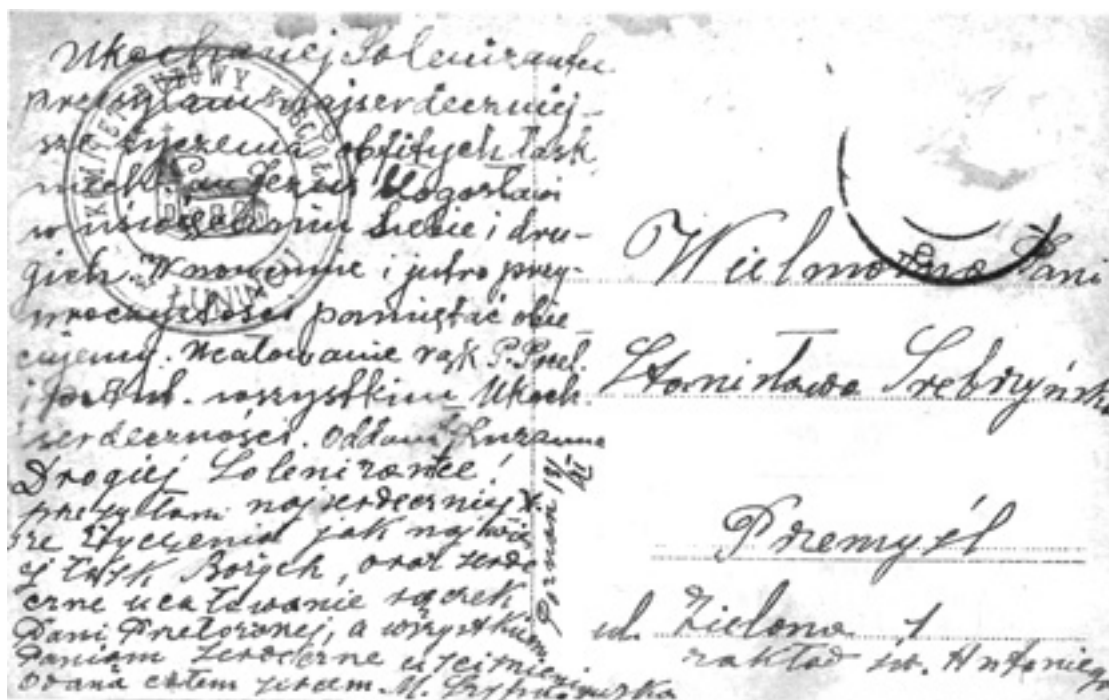 Ukochanej Solenizantce
przesyłam najserdeczniej-
sze życzenia obfitych łask
niech Pan Jezus błogosławi
w uświęceniu siebie i dru-
gich. W nowennie i jutro przy
uroczystości pamiętać obie
cujemy. Ucałowanie rąk P. Przeł.
i wszystkim Ukoch.
serdeczności. Oddana Zuzanna
Drogiej Solenizantce!
przesyłam najserdeczniej
sze życzenia jak najwię
ej łask Bożych, oraz serde
czne ucałowanie rączek
Pani Przełożonej, a wszystkim
Paniom serdeczne uściśnienia
oddana całem sercem M.
Poznań 18/XI
KOMITET BUDOWY KOŚCIOŁA
W ŁUNIŃCU
Wielmożna Pani
Stanisława Srebrzyńska
Przemyśl
ul. Zielona 1
zakład św. Antoniego